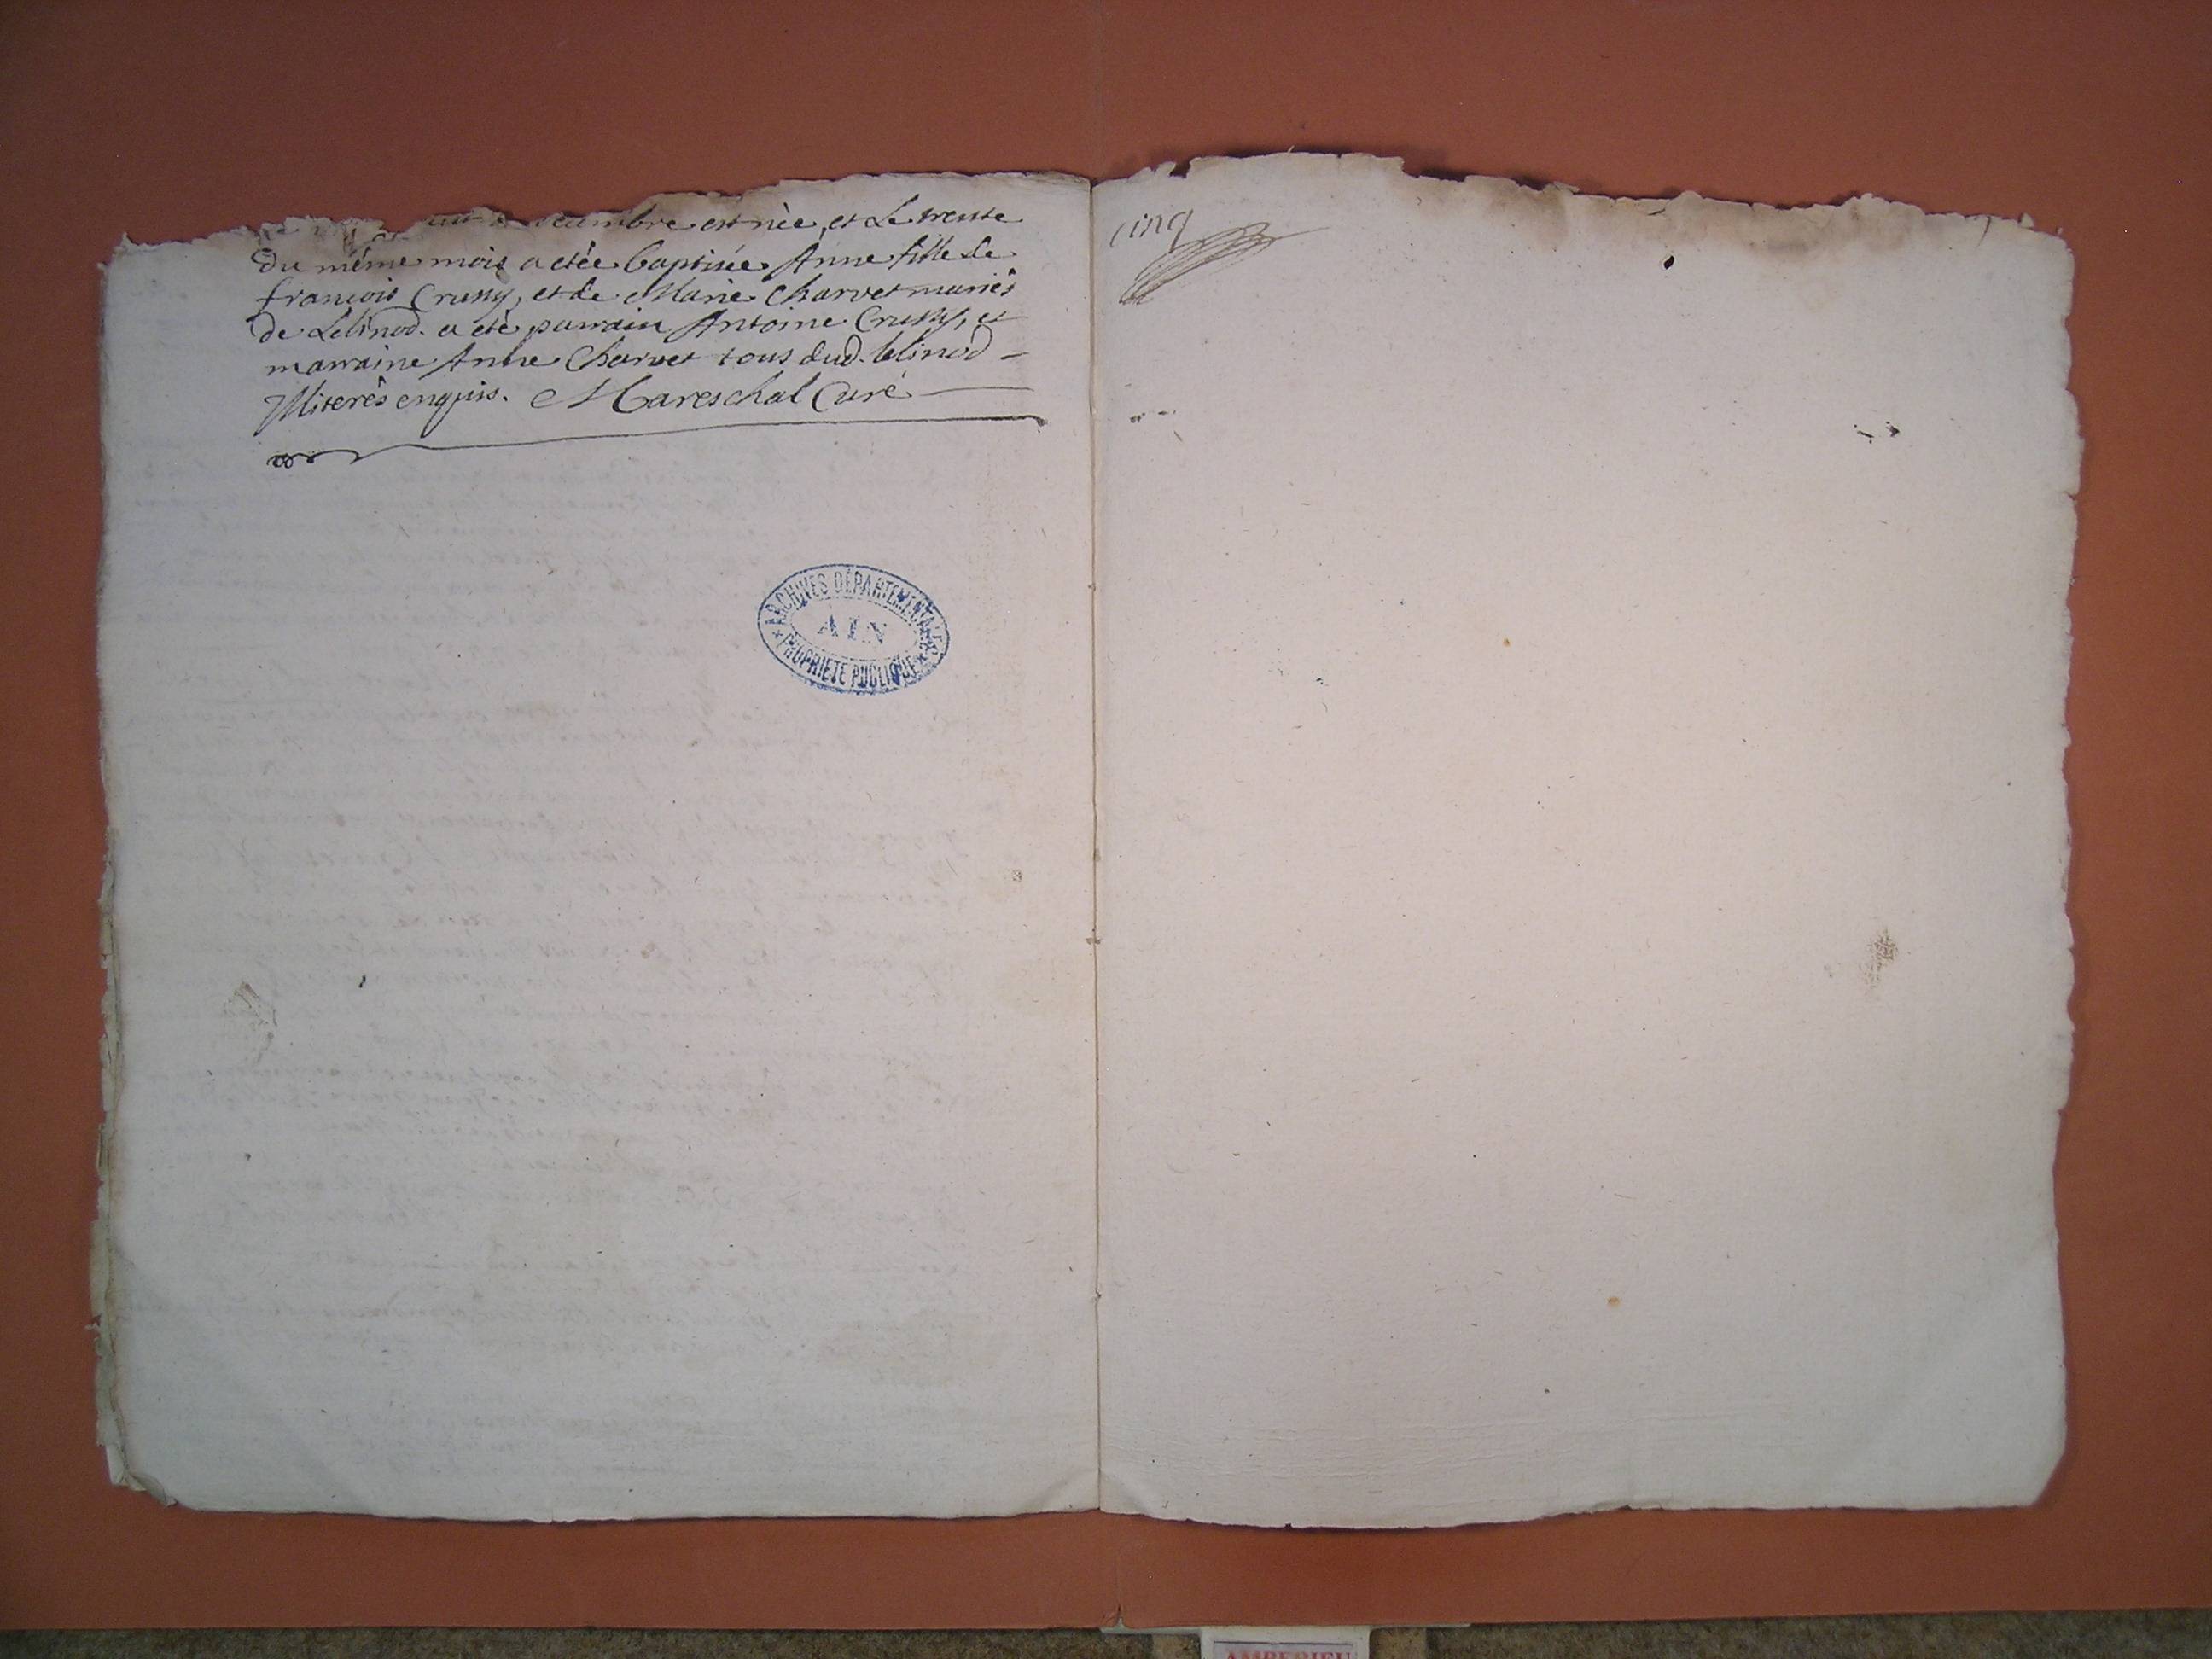 est née, et Le trente
Du même mois a etée Baptisée Anne fille de
françois Crussy, et de Marie Charvet mariés
de Lélinod. a eté parrain Antoine Crussy, et
marraine Anne Charvet tous dud. lelinod -
Illiterés enquis. Mareschal Curé
cinq
ARCHIVES DÉPARTEMENTALES
AIN
PROPRIÉTÉ PUBLIQUE
AMBERIEU